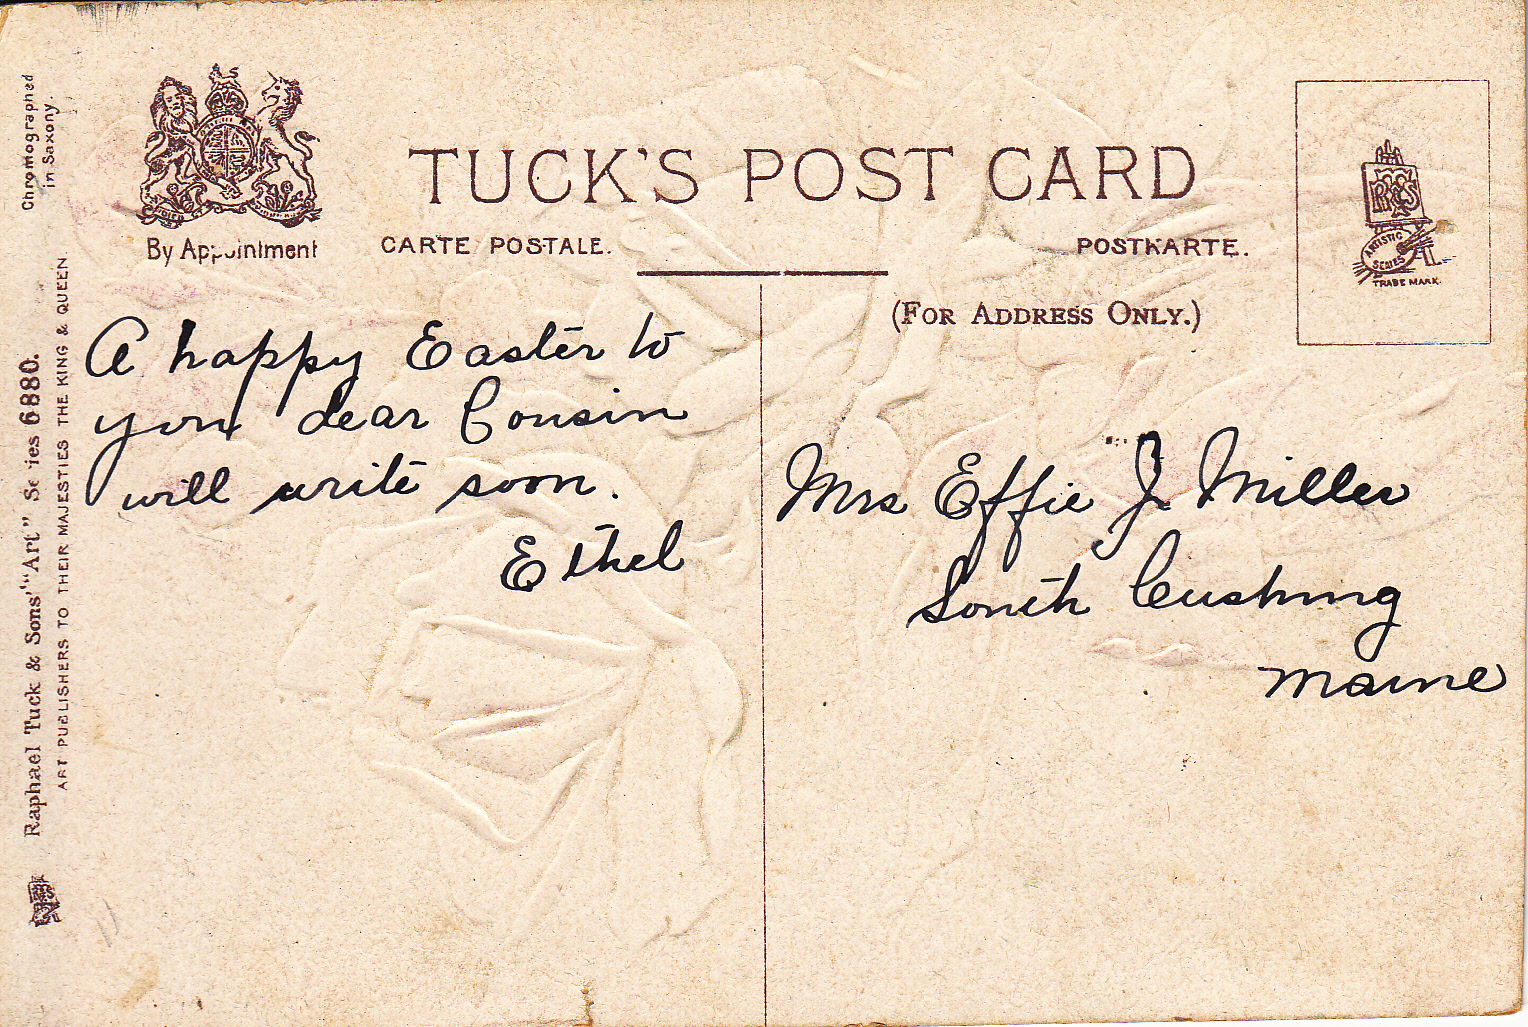 TUCK'S POST CARD
CARTE POSTALE.
POSTKARTE.
By Appointment
(FOR ADDRESS ONLY.)
ARTISTIC
SERIES
TRADE MARK.
Chromographed
in Saxony.
Raphael Tuck & Sons' "Art" Series 6880.
ART PUBLISHERS TO THEIR MAJESTIES THE KING & QUEEN
A happy Easter to
you dear Cousin
will write soon.
Ethel
Mrs Effie J. Miller
South Cushing
Maine